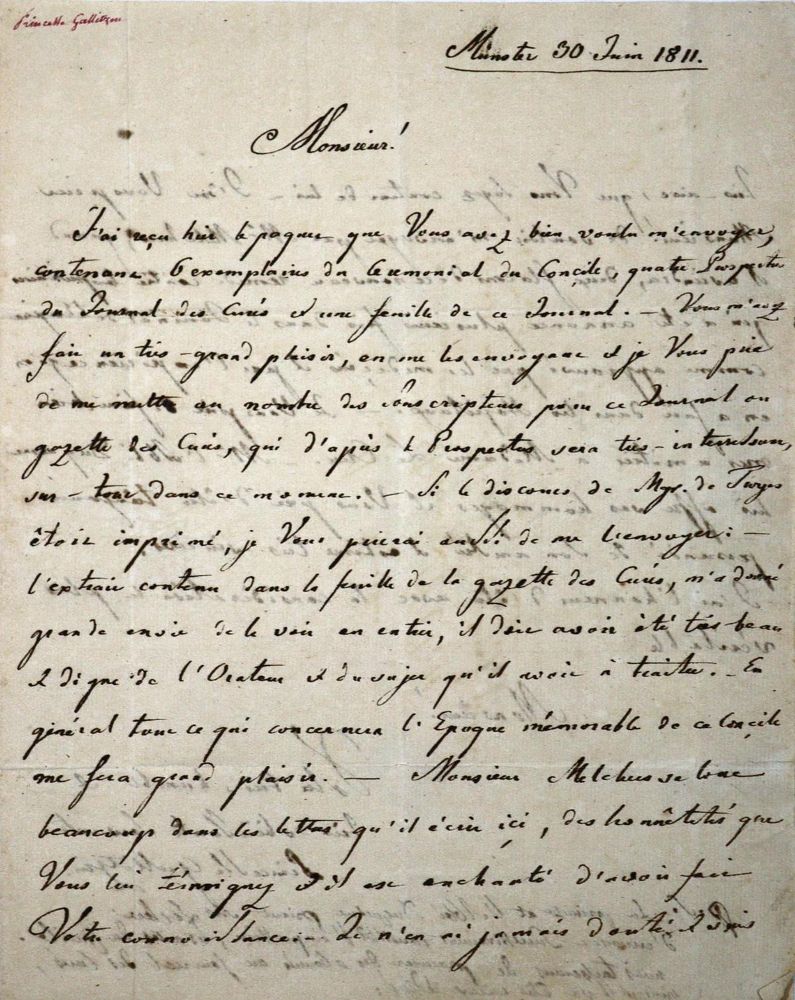 Princesse Gallitzin
Münster 30 Juin 1811.
Monsieur!
J'ai reçu hier le paquet que Vous avez bien voulu m'envoyer,
contenant 6 exemplaires du Ceremonial du Conçile, quatre Prospectus
du Journal des Curés et une feuille de ce Journal. — Vous m'avez
fait un très-grand plaisir, en me les envoyant et je Vous prie
de me mettre au nombre des souscripteurs pour ce Journal ou
gazette des Curés, qui d'après le Prospectus sera très-interressant,
sur-tout dans ce moment. — Si le discours de Mgr. de
étoit imprimé, je Vous prierai aussi de me l'envoyer: —
l'extrait contenu dans la feuille de la gazette des Curés, m'a donné
grande envie de le voir en entier, il doit avoir été très-beau
et digne de l'Orateur et du sujet qu'il avoit à traiter. — En
général tout ce qui concernera l'Epoque mémorable de ce Conçile
me fera grand plaisir. — Monsieur Melchers se loue
beaucoup dans les lettres qu'il écrit içi, des honnêtetés que
Vous lui témoignez et il est enchanté d'avoir fait
Votre connoissance. — Je n'en ai jamais douté et suis